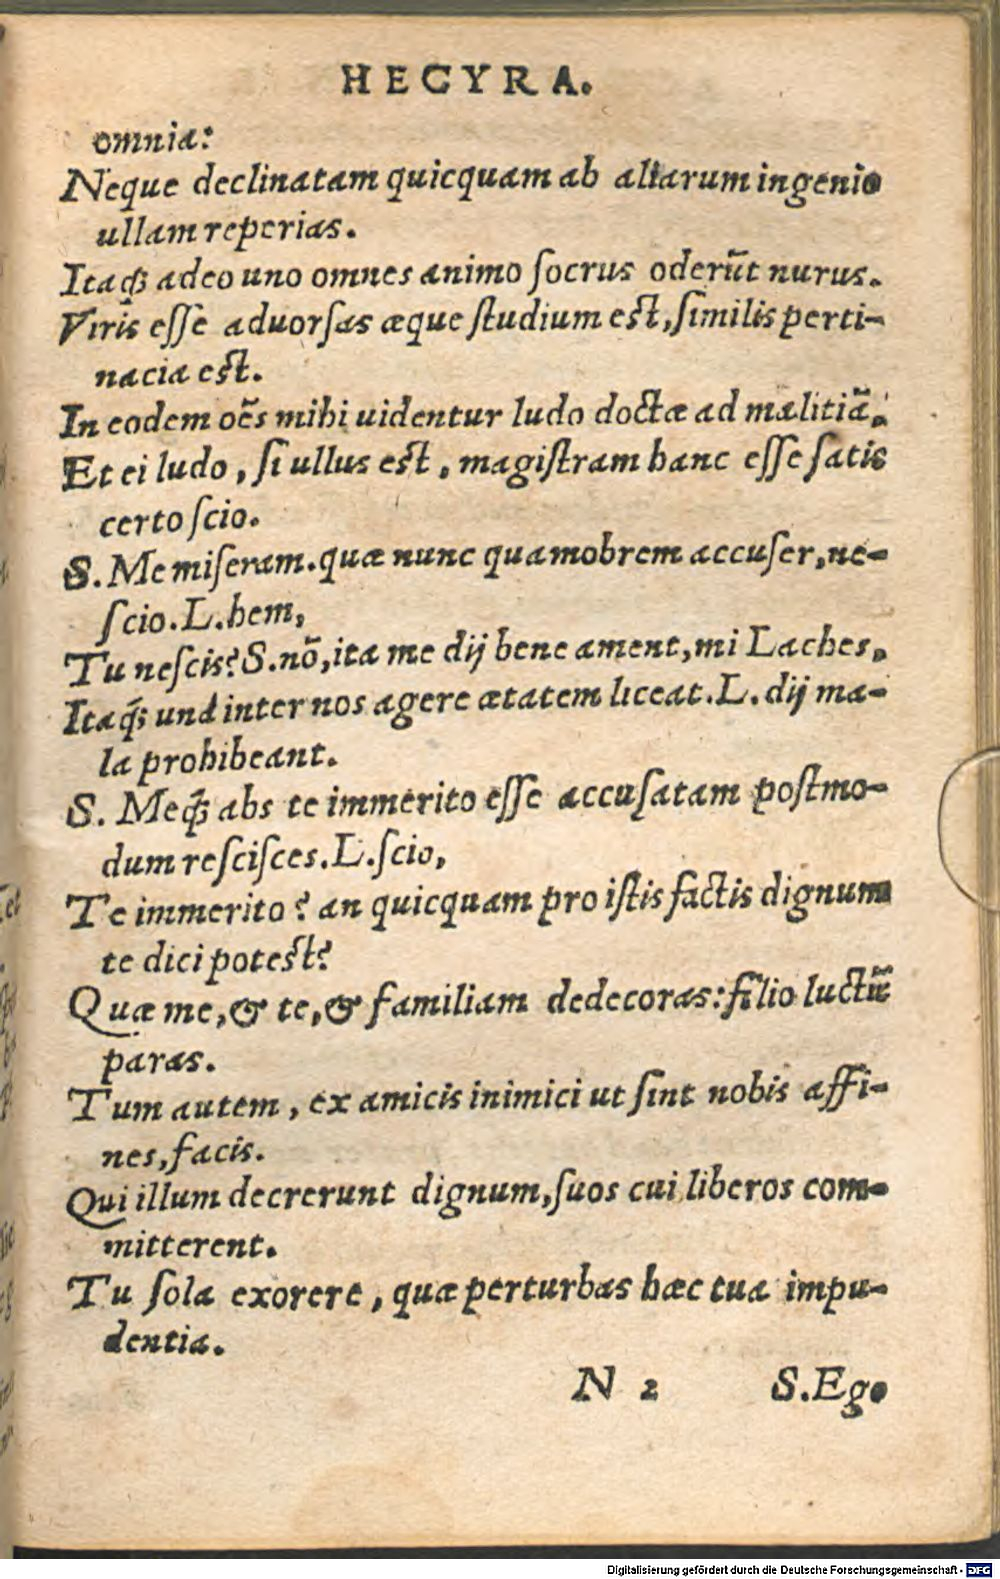 HECYRA.
omnia:
Neque declinatam quicquam ab aliarum ingenio
ullam reperias.
Itaq́; adeo uno omnes animo ſocrus oderũt nurus.
Viris eſſe aduorſas æque ſtudium eſt, ſimilis perti-
nacia eſt.
In eodem oẽs mihi uidentur ludo doctæ ad malitiã.
Et ei ludo, ſi ullus eſt, magiſtram hanc eſſe ſatis
certo ſcio.
S. Me miſeram. quæ nunc quamobrem accuſer, ne-
ſcio. L. hem,
Tu neſcis? S. nõ, ita me dij bene ament, mi Laches,
Itaq́; unà inter nos agere ætatem liceat. L. dij ma-
la prohibeant.
S. Meq́; abs te immerito eſſe accuſatam poſtmo-
dum reſciſces. L. ſcio,
Te immerito? an quicquam pro iſtis factis dignum
te dici poteſt?
Quæ me, & te, & familiam dedecoras: filio luctũ
paras.
Tum autem, ex amicis inimici ut ſint nobis affi-
nes, facis.
Qui illum decrerunt dignum, ſuos cui liberos com-
mitterent.
Tu ſola exorere, quæ perturbas hæc tua impu-
dentia.
N 2 S. Ego
Digitalisierung gefördert durch die Deutsche Forschungsgemeinschaft - DFG